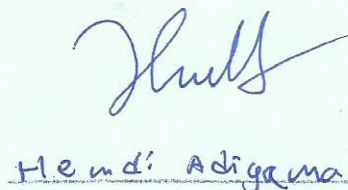 Hemdi Adigama